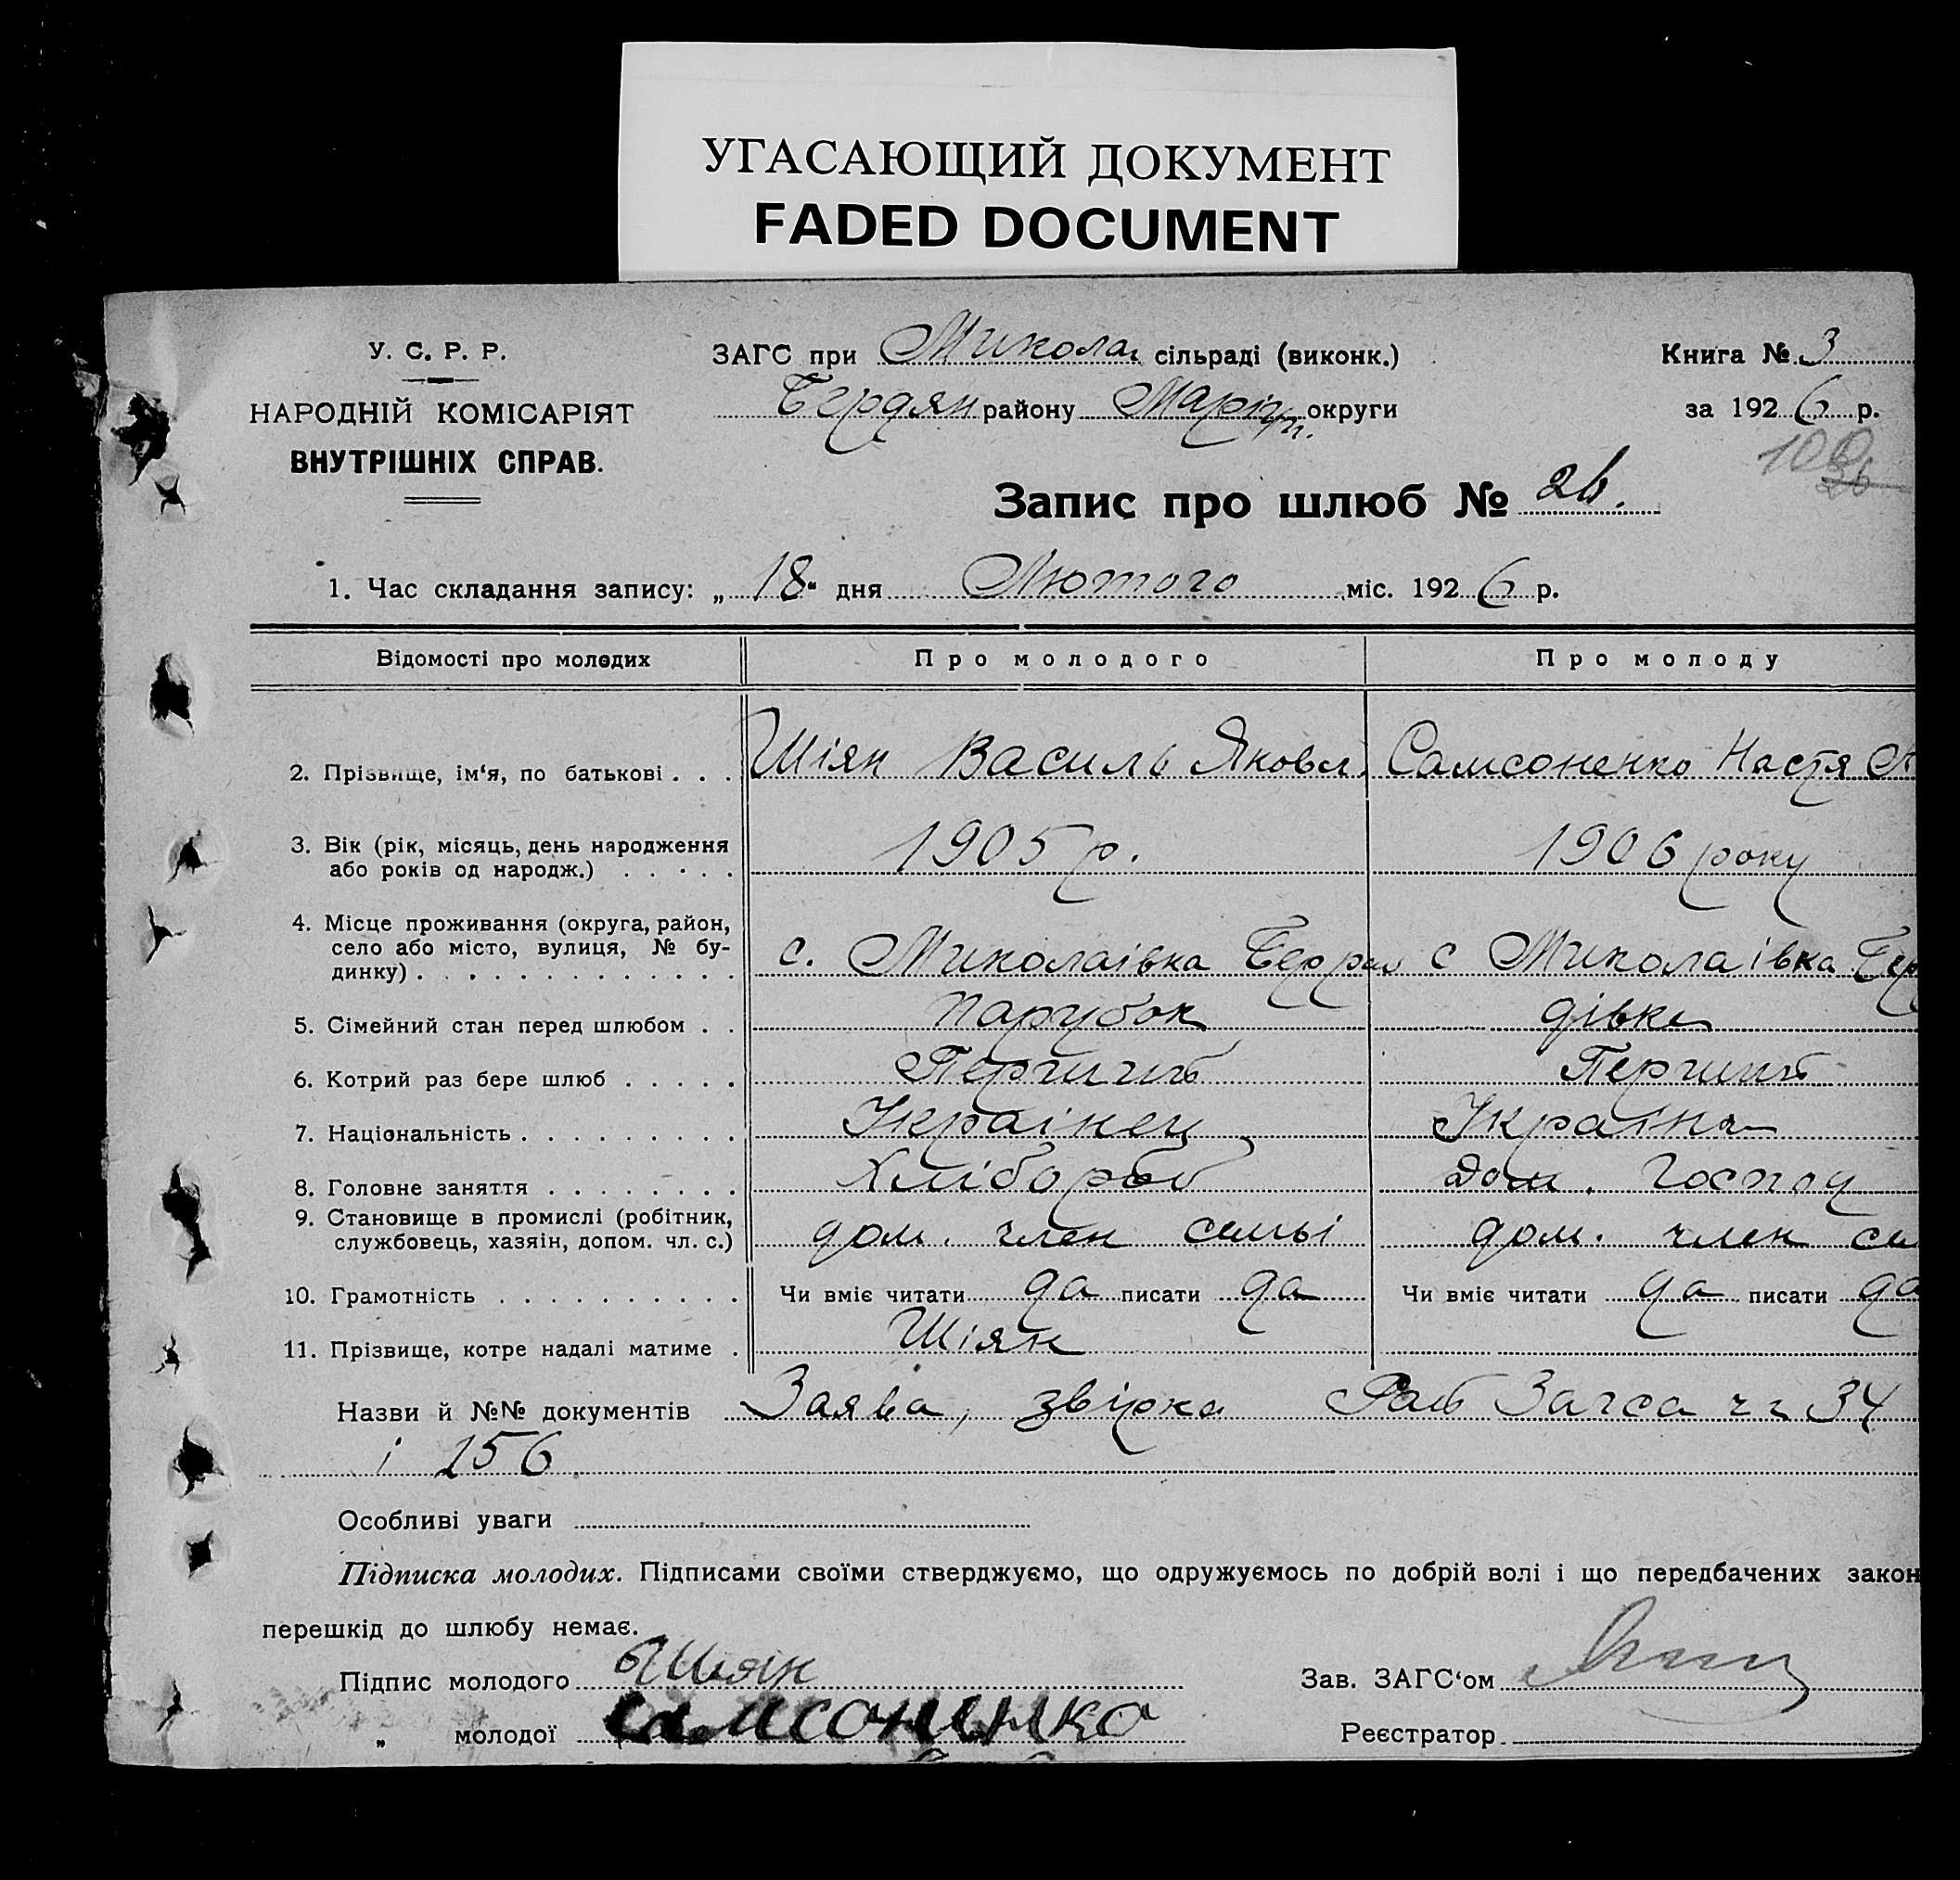 УГАСАЮЩИЙ ДОКУМЕНТ
FADED DOCUMENT
У. С. Р. Р.
НАРОДНІЙ КОМІСАРІЯТ
ВНУТРІШНІХ СПРАВ.
ЗАГС при Микола. сільраді (виконк.)
Бердян району Маріуп. округи
Книга № 3
за 1926 р.
100
26
Запис про шлюб № 26.
1. Час складання запису: „18“ дня Лютого міс. 1926 р.
Відомості про молодих Про молодого Про молоду
2. Прізвище, ім‘я, по батькові . . . Шіян Василь Яковл. Самсоненко Настя
3. Вік (рік, місяць, день народження
або років од народж.) . . . . . 1905 р. 1906 року
4. Місце проживання (округа, район,
село або місто, вулиця, № бу-
динку) . . . . . . . . . . . . . с. Миколаівка Бер рай с Миколаівка Бер
5. Сімейний стан перед шлюбом . . Парубок дівка
6. Котрий раз бере шлюб . . . . . Перчий Перчий
7. Національність . . . . . . . . . Украінец Украінка
8. Головне заняття . . . . . . . . Хлібороб Дом. Господ
9. Становище в промислі (робітник,
службовець, хазяін, допом. чл. с.) дом. член семьі дом. член се
10. Грамотність . . . . . . . . . . Чи вміє читати да писати да Чи вміє читати да писати да
11. Прізвище, котре надалі матиме . Шіян
Назви й №№ документів Заява, звірка Загса чч 34
і 156
Особливі уваги
Підписка молодих. Підписами своїми стверджуємо, що одружуємось по добрій волі і що передбачених закон
перешкід до шлюбу немає.
Підпис молодого Шіян Зав. ЗАГС‘ом
„ молодої Самсоненко Реєстратор